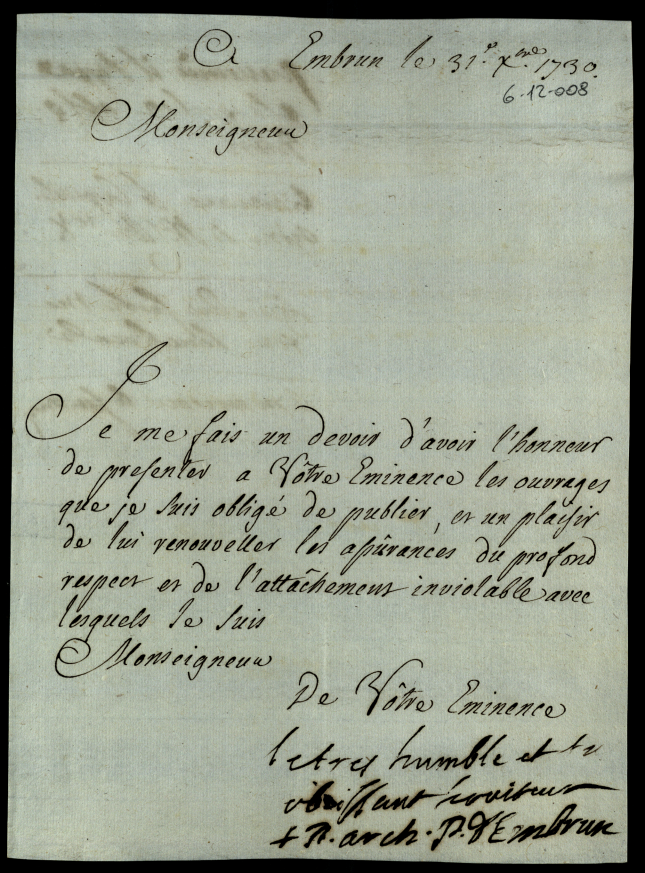 A Embrun le 31.e Xbre. 1730.
6-12-008
Monseigneur
Je me fais un devoir d'avoir l'honneur
de presenter a Vôtre Eminence les ouvrages
que je suis obligé de publier, et un plaisir
de lui renouveller les assûrances du profond
respect et de l'attâchement inviolable avec
lesquels Je suis
Monseigneur
De Vôtre Eminence
le tres humble et
obeissant serviteur
+ P. arch. P. d'Embrun